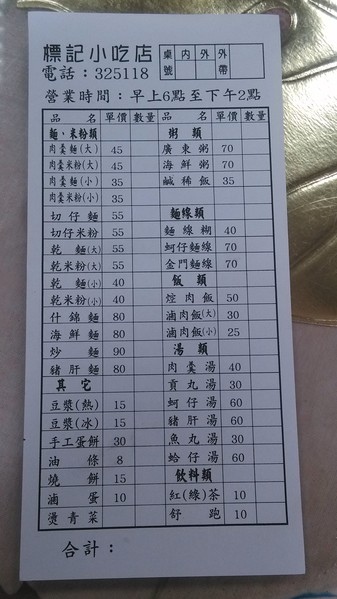 標記小吃店 桌號 內 外 外帶
電話：325118
營業時間：早上6點至下午2點
品名 單價 數量 品名 單價 數量
麵、米粉類 粥類
肉羹麵(大) 45 廣東粥 70
肉羹米粉(大) 45 海鮮粥 70
肉羹麵(小) 35 鹹稀飯 35
肉羹米粉(小) 35
切仔麵 55 麵線類
切仔米粉 55 麵線糊 40
乾麵(大) 55 蚵仔麵線 70
乾米粉(大) 55 金門麵線 70
乾麵(小) 40 飯類
乾米粉(小) 40 焢肉飯 50
什錦麵 80 滷肉飯(大) 30
海鮮麵 80 滷肉飯(小) 25
炒麵 90 湯類
豬肝麵 80 肉羹湯 40
其它 貢丸湯 30
豆漿(熱) 15 蚵仔湯 60
豆漿(冰) 15 豬肝湯 60
手工蛋餅 30 魚丸湯 30
油條 8 蛤仔湯 60
燒餅 15 飲料類
滷蛋 10 紅(綠)茶 10
燙青菜 舒跑 10
合計：